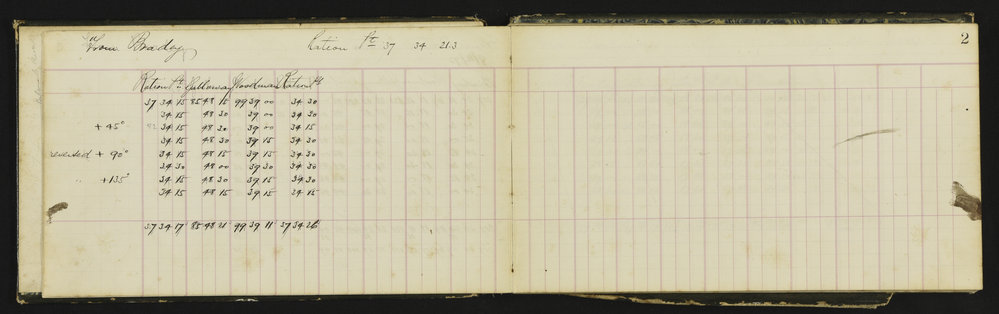 From Bradey Ration Pt 37 34 21.3
2
Ration Pt Woodman Ration Pt
37 34 15 85 48 15 99 39 00 34 30
34 15 48 30 39 00 34 30
+ 45° 34 15 48 30 39 00 34 15
34 15 48 30 39 15 34 30
reversed + 90° 34 15 48 15 39 15 34 30
34 30 48 00 39 30 34 30
" + 135° 34 15 48 15 39 30 34 30
34 15 48 15 39 15 34 15
37 34 17 85 48 21 99 39 11 37 34 26